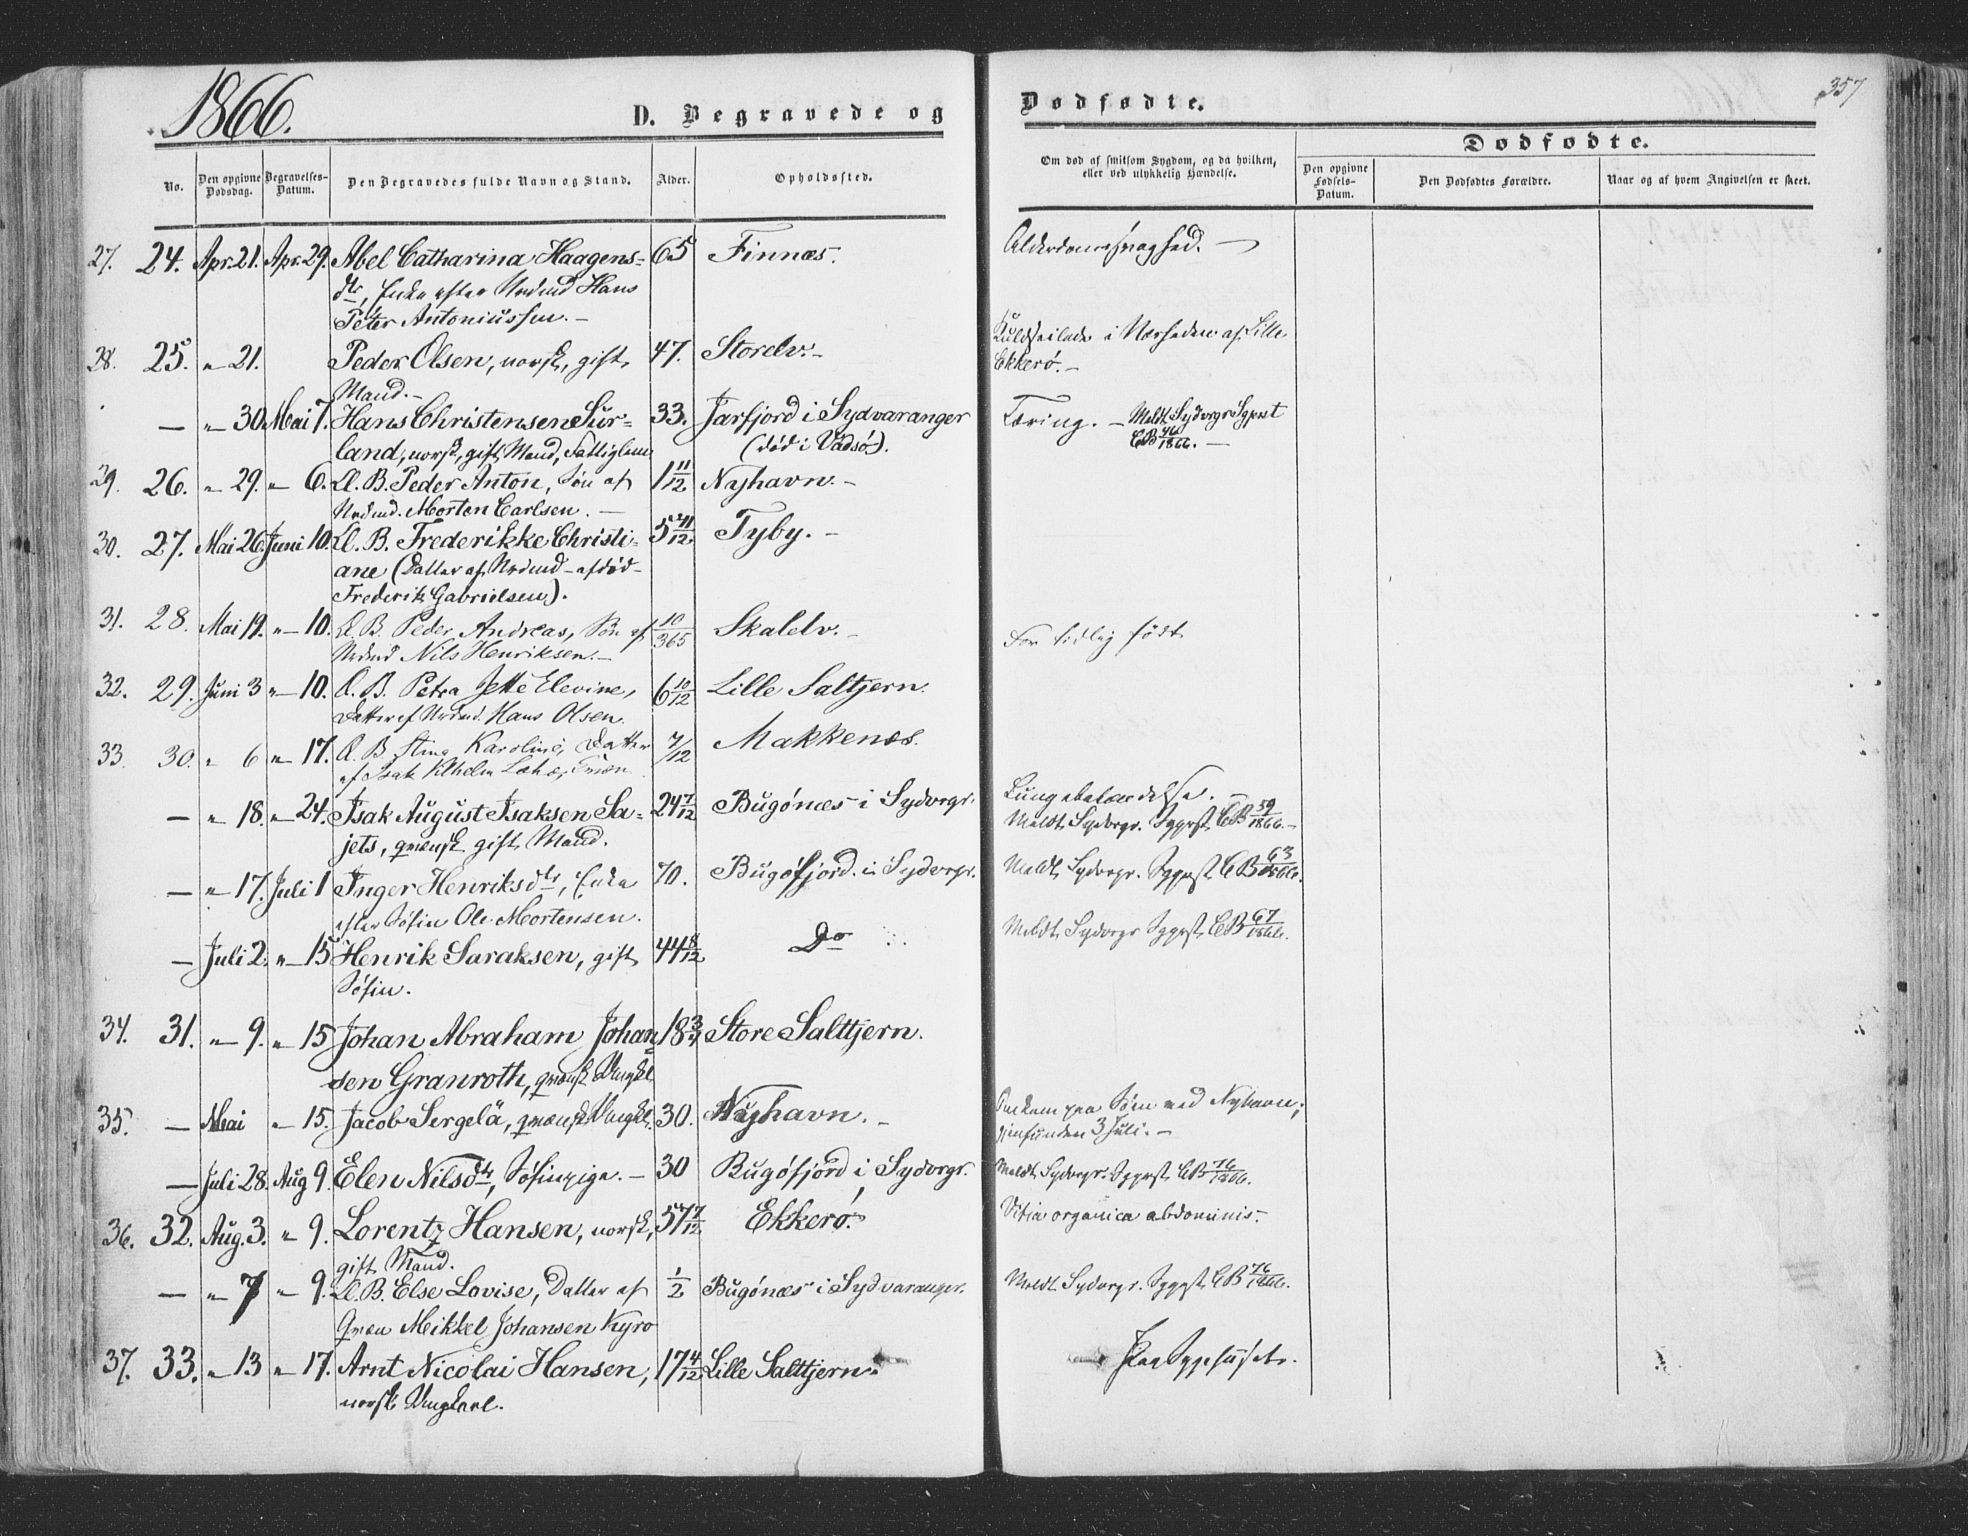 1866.
D. Begravede og Dødfødte.
357
Dødfødte.
No.
Den opgivne Dødsdag.
Begravelses-Datum.
Den Begravedes fulde Navn og Stand.
Alder.
Opholdssted.
Om død af smitsom Sygdom, og da hvilken, eller ved ulykkelig Hændelse.
Den opgivne Fødsels-Datum.
Den Dødfødtes Forældre.
Naar og af hvem Angivelsen er skeet.
27. 24. Apr. 21. Apr. 29. Abel Catharina Haagens= 65 Finnæs. Alderdomssvaghed. —
dtr, Enke efter Nrdmd Hans
Peter Antoniussen. —
28. 25. " 21. Peder Olsen, norsk, gift 47. Storelv. — Kuldseilede i Nærheden af Lille
Mand. — Ekkerø. —
— " 30. Mai 7. Hans Christensen Sür= 33. Jarfjord i Sydvaranger Tæring. — Meldt Sydvrgr Sgprst
land, norsk, gift Mand, Fattiglem (død i Vadsø). CB 46/1866. —
29. 26. " 29. " 6. D. B. Peder Anton, Søn af 1 11/12 Nyhavn. —
Nrdmd. Morten Carlsen. —
30. 27. Mai 26. Juni 10. D. B. Frederikke Christi= 5 11/12 Tyby. —
ane (Datter af Nrdmd — afdød —
Frederik Gabrielsen).
31. 28. Mai 19. " 10. D. B. Peder Andreas, Søn af 10/365 Skalelv. — For tidlig født
Nrdmd Nils Henriksen. —
32. 29. Juni 3 " 10. D. B. Petra Jette Elevine, 6 10/12 Lille Saltjern.
Datter af Nrdmd. Hans Olsen.
33 30. " 6 " 17. D. B Stina Karoline, Datter 7/12 Makkenæs.
af Isak
— " 18. " 24. Isak August Isaksen Sa= 24 7/12 Bugønæs i Sydvrgr. Lungebetændelse. —
jets, qvænsk gift Mand. Meldt Sydvrgr. Sgprst CB 59/1866. —
— " 17. Juli 1 Inger Henriksdtr, Enke 70. Bugøfjord i Sydvrgr. Meldt Sydvrgr. Sgprst CB 63/1866.
efter Søfin Ole Mortensen.
— Juli 2. " 15 Henrik Saraksen, gift 44 8/12 Do Meldt Sydvrgr Sgprst CB 67/1866.
Søfin.
34. 31. " 9. " 15 Johan Abraham Johan= 18 3/4 Store Salttjern.
sen Granroth, qvænsk Ungkl
35. — Mai " 15. Jacob Sergelä, qvænsk Ungkl. 30. Nyhavn. — Omkom paa Søen ved Nyhavn;
gjenfunden 3 Juli. —
— Juli 28. Aug 9. Elen Nilsdtr, Søfinpige. — 30 Bugøfjord i Sydvrgr. Meldt Sydvrgr. Sgprst CB 76/1866.
36. 32. Aug. 3. " 9. Lorentz Hansen, norsk, 57 7/12 Ekkerø. Vitia organica abdominis.
gift Mand.
— " 7 " 9. D. B. Else Lovise, Datter af 1/2 Bugønæs i Sydvaranger. Meldt Sydvrgr. Sgprst CB 76/1866.
Qvæn Mikkel Johansen Kyro
37. 33. " 13 " 17. Arnt Nicolai Hansen, 17 4/12 Lille Salttjern. Paa Sygehuset.
norsk Ungkarl.